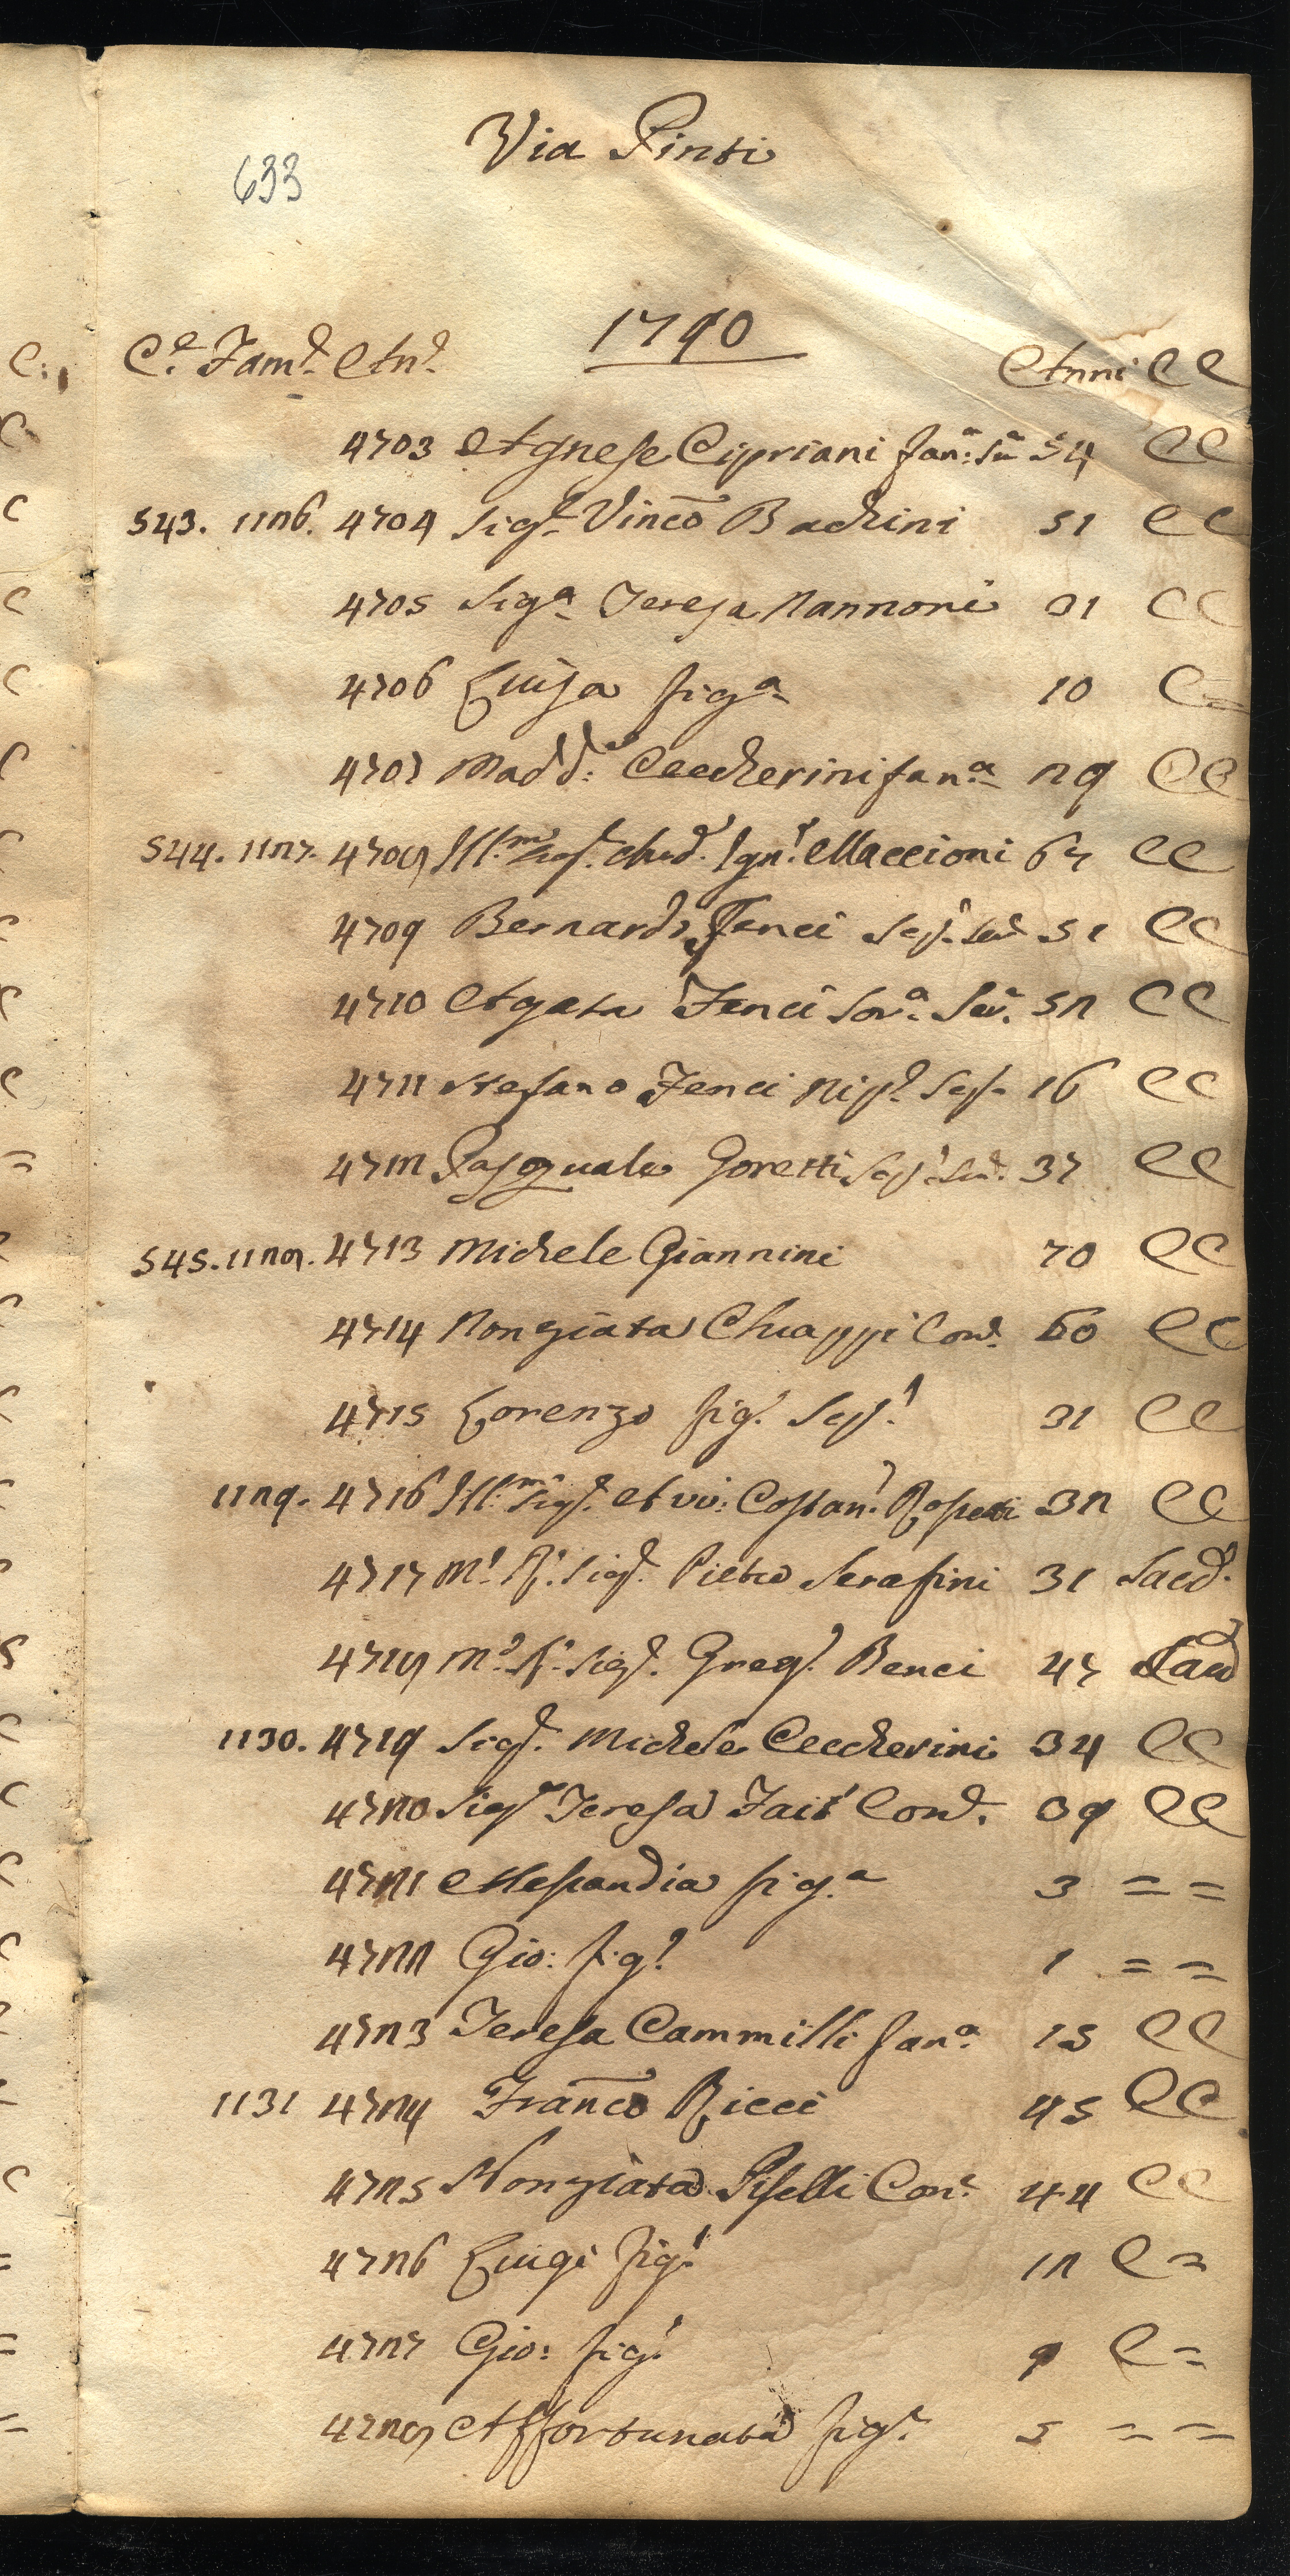 Via Pinti
633
1790
C.e Fam.e An.e Anni C C
4703 Agnese Cipriani fan.a Su.a 54 C C
543. 1126. 4704 Sig.r Vinc.o Bachini 51 C C
4705 Sig.a Teresa Nannoni 31 C C
4706 Luisa fig.a 10 C =
4707 Madd.a Ceccherini fan.a 29 C C
544. 1127. 4708 Ill.mo Sig.r Aud.e Ign.o Maccioni 67 C C
4709 Bernardo Fenci Ser.e 51 C C
4710 Agata Fenci Sor.a Ser. 52 C C
4711 Stefano Fenci Nip.e 16 C C
4712 Pasquale Goretti 37 C C
545. 1128. 4713 Michele Giannini 70 C C
4714 Nonziata Chiappi Con.e 60 C C
4715 Lorenzo fig.o 31 C C
1129. 4716 Ill.mo Sig.r Avv: Costan.o 32 C C
4717 M.o R.o Sig.r Pietro Serafini 31 Sacd.e
4718 M.o R.o Sig.r Greg.o Benci 47 Sacd
1130. 4719 Sig.r Michele Ceccherini 34 C C
4720 Sig.a Teresa Con.e 39 C C
4721 Alessandra fig.a 3 = =
4722 Gio: fig.o 1 = =
4723 Teresa Cammilli fan.a 15 C C
1131 4724 Franc.o Ricci 45 C C
4725 Nonziata Piselli Con.e 44 C C
4726 Luigi fig.o 12 C =
4727 Gio: fig.o 9 C =
4728 Affortunata fig.a 5 = =